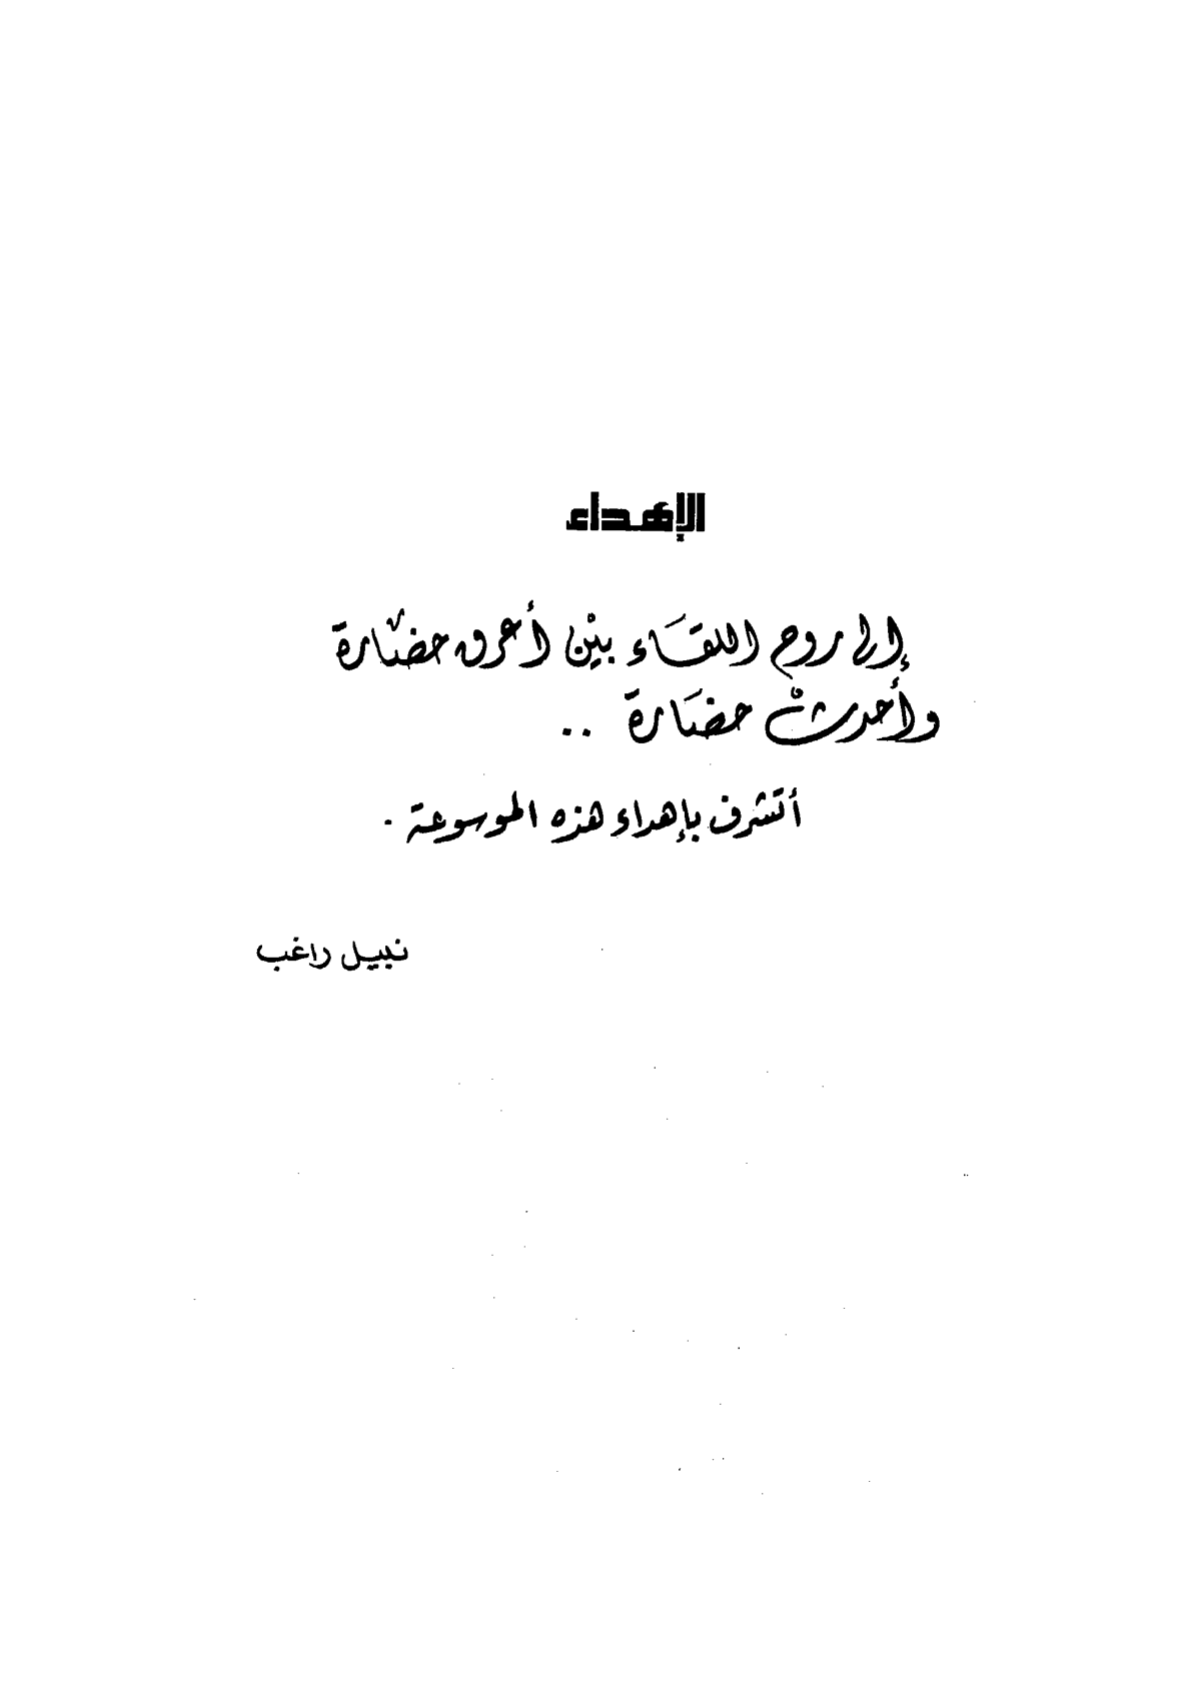 الإهداء
إلى روح اللقاء بين أعرق حضارة
وأحدث حضارة ..
أتشرف بإهداء هذه الموسوعة .
نبيل راغب